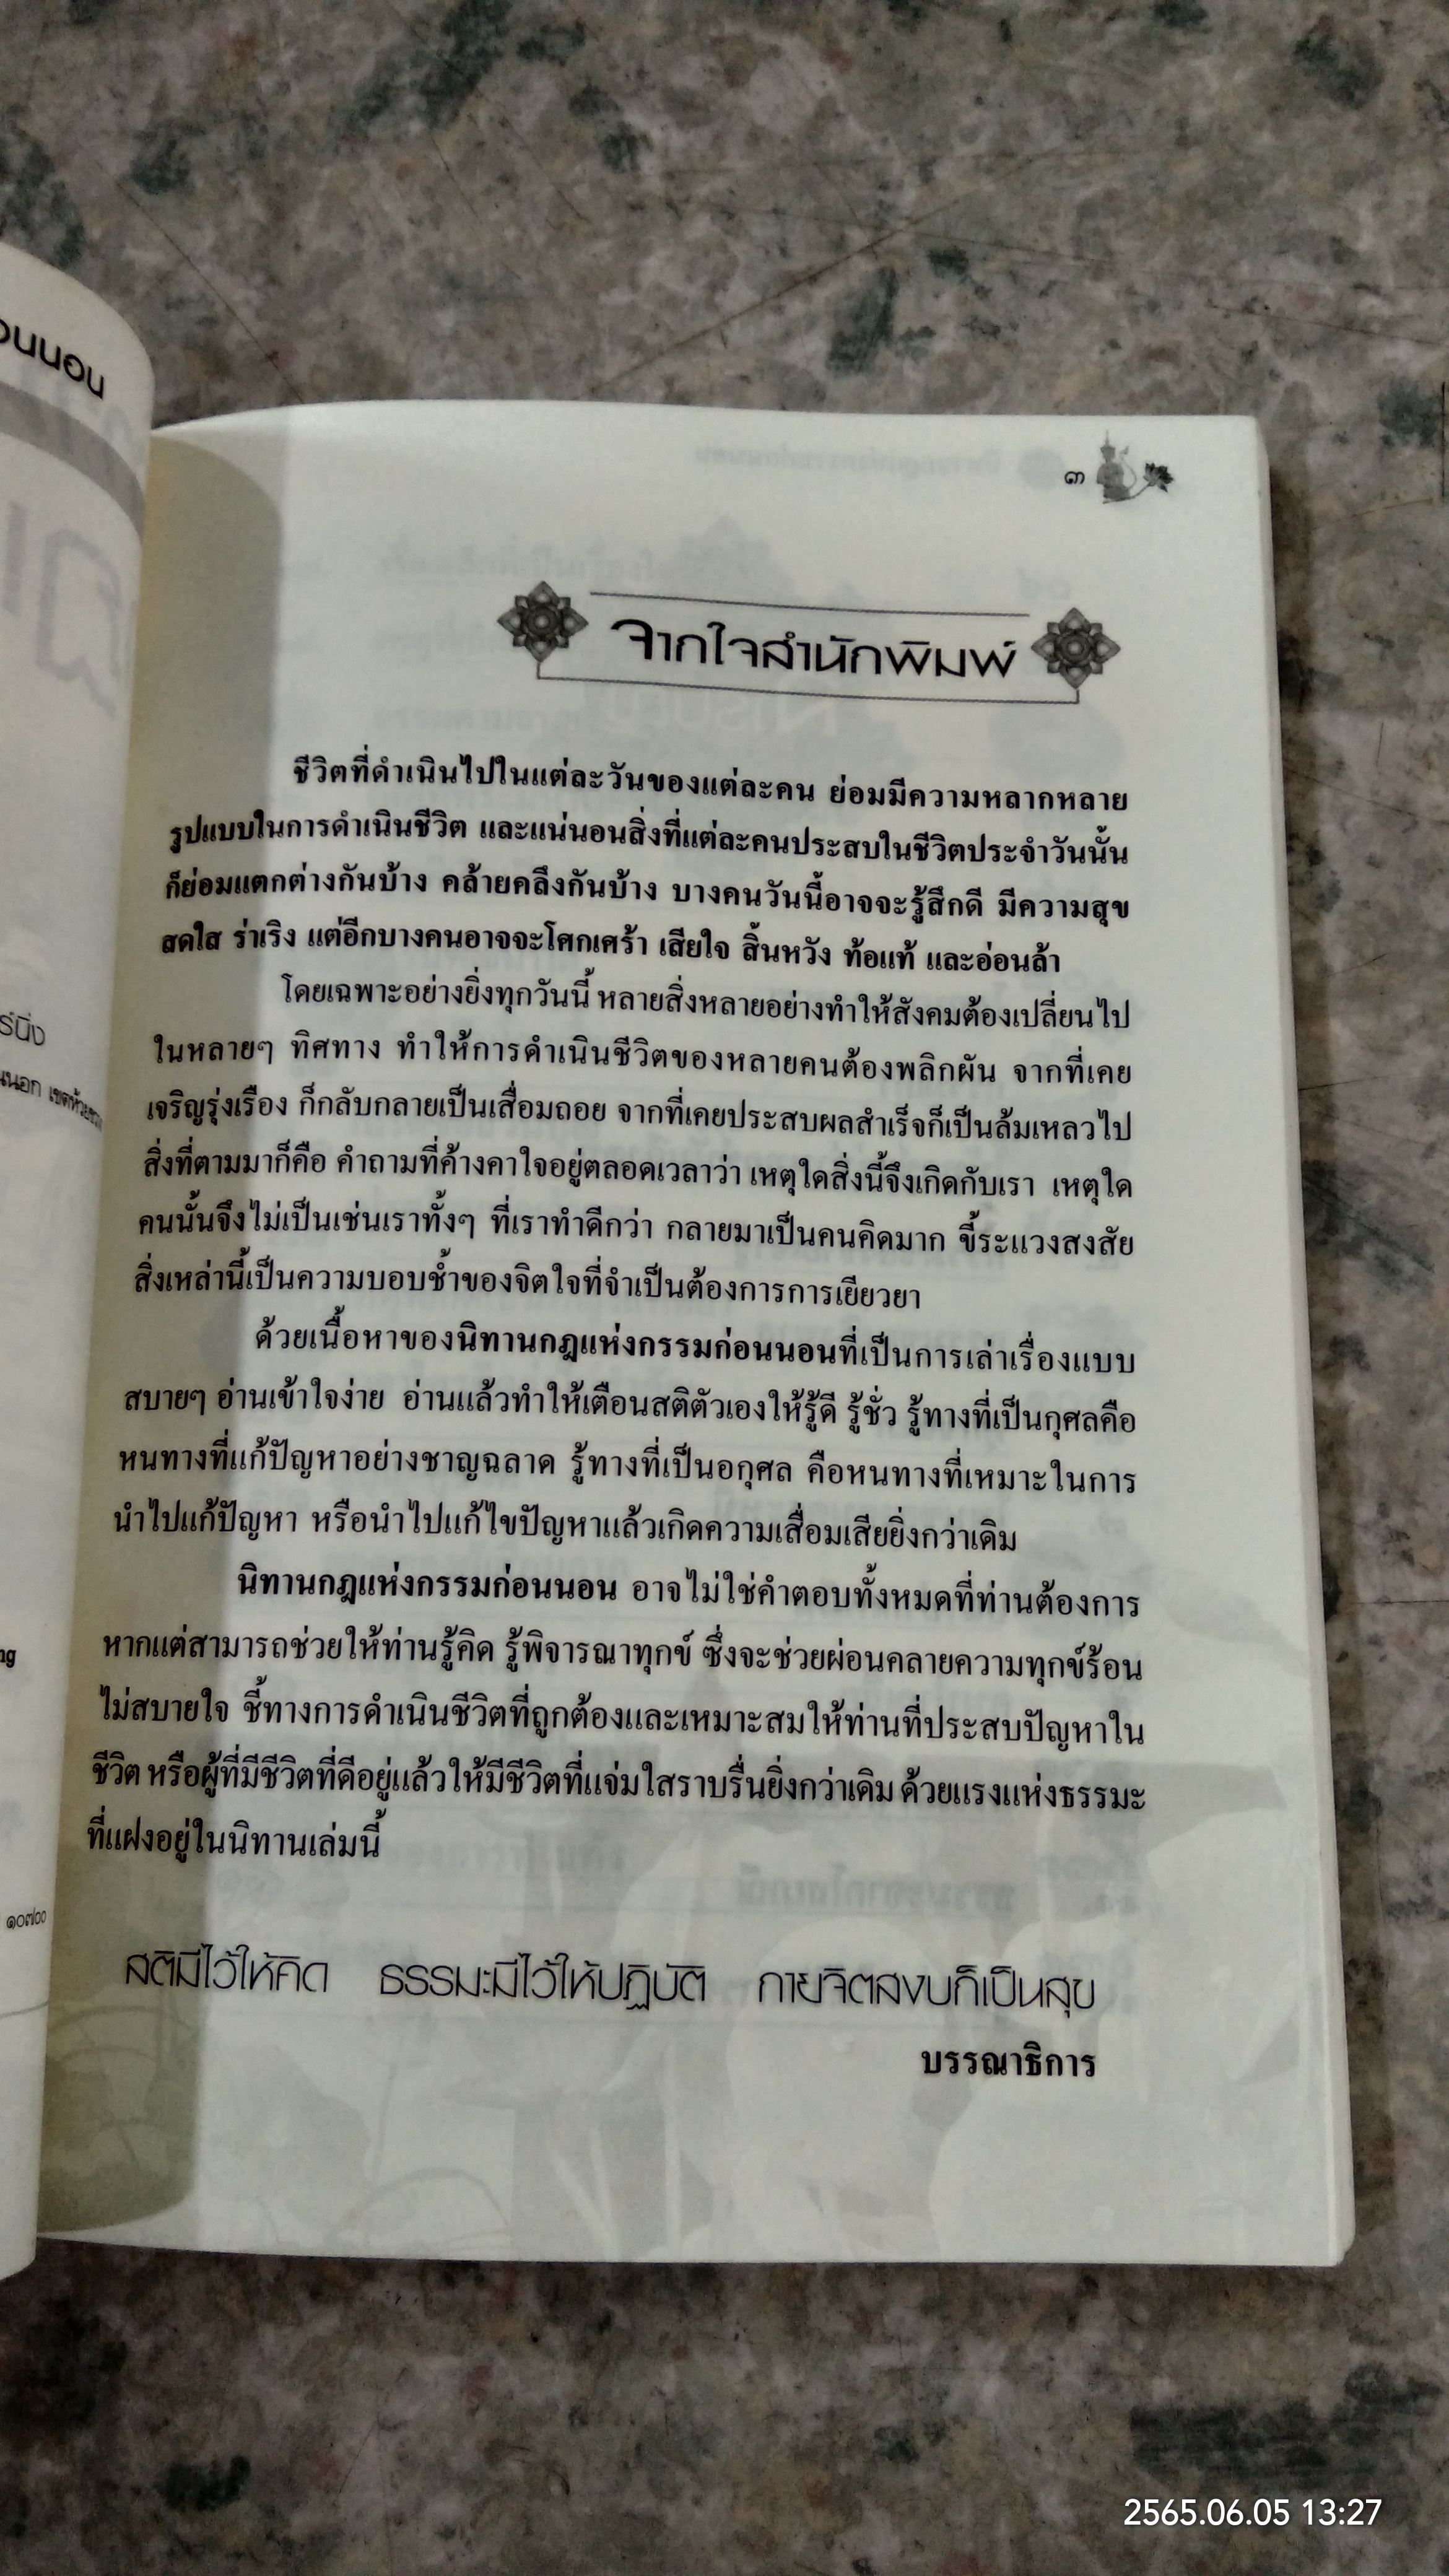 ๓
จากใจสำนักพิมพ์
ชีวิตที่ดำเนินไปในแต่ละวันของแต่ละคน ย่อมมีความหลากหลาย
รูปแบบในการดำเนินชีวิต และแน่นอนสิ่งที่แต่ละคนประสบในชีวิตประจำวันนั้น
ก็ย่อมแตกต่างกันบ้าง คล้ายคลึงกันบ้าง บางคนวันนี้อาจจะรู้สึกดี มีความสุข
สดใส ร่าเริง แต่อีกบางคนอาจจะโศกเศร้า เสียใจ สิ้นหวัง ท้อแท้ และอ่อนล้า
โดยเฉพาะอย่างยิ่งทุกวันนี้ หลายสิ่งหลายอย่างทำให้สังคมต้องเปลี่ยนไป
ในหลายๆ ทิศทาง ทำให้การดำเนินชีวิตของหลายคนต้องพลิกผัน จากที่เคย
เจริญรุ่งเรือง ก็กลับกลายเป็นเสื่อมถอย จากที่เคยประสบผลสำเร็จก็เป็นล้มเหลวไป
สิ่งที่ตามมาก็คือ คำถามที่ค้างคาใจอยู่ตลอดเวลาว่า เหตุใดสิ่งนี้จึงเกิดกับเรา เหตุใด
คนนั้นจึงไม่เป็นเช่นเราทั้งๆ ที่เราทำดีกว่า กลายมาเป็นคนคิดมาก ขี้ระแวงสงสัย
สิ่งเหล่านี้เป็นความบอบช้ำของจิตใจที่จำเป็นต้องการการเยียวยา
ด้วยเนื้อหาของนิทานกฎแห่งกรรมก่อนนอนที่เป็นการเล่าเรื่องแบบ
สบายๆ อ่านเข้าใจง่าย อ่านแล้วทำให้เตือนสติตัวเองให้รู้ดี รู้ชั่ว รู้ทางที่เป็นกุศลคือ
หนทางที่แก้ปัญหาอย่างชาญฉลาด รู้ทางที่เป็นอกุศล คือหนทางที่เหมาะในการ
นำไปแก้ปัญหา หรือนำไปแก้ไขปัญหาแล้วเกิดความเสื่อมเสียยิ่งกว่าเดิม
นิทานกฎแห่งกรรมก่อนนอน อาจไม่ใช่คำตอบทั้งหมดที่ท่านต้องการ
หากแต่สามารถช่วยให้ท่านรู้คิด รู้พิจารณาทุกข์ ซึ่งจะช่วยผ่อนคลายความทุกข์ร้อน
ไม่สบายใจ ชี้ทางการดำเนินชีวิตที่ถูกต้องและเหมาะสมให้ท่านที่ประสบปัญหาใน
ชีวิต หรือผู้ที่มีชีวิตที่ดีอยู่แล้วให้มีชีวิตที่แจ่มใสราบรื่นยิ่งกว่าเดิม ด้วยแรงแห่งธรรมะ
ที่แฝงอยู่ในนิทานเล่มนี้
สติมีไว้ให้คิด ธรรมะมีไว้ให้ปฏิบัติ กายจิตสงบก็เป็นสุข
บรรณาธิการ
๑๐๗๐๐
2565.06.05 13:27